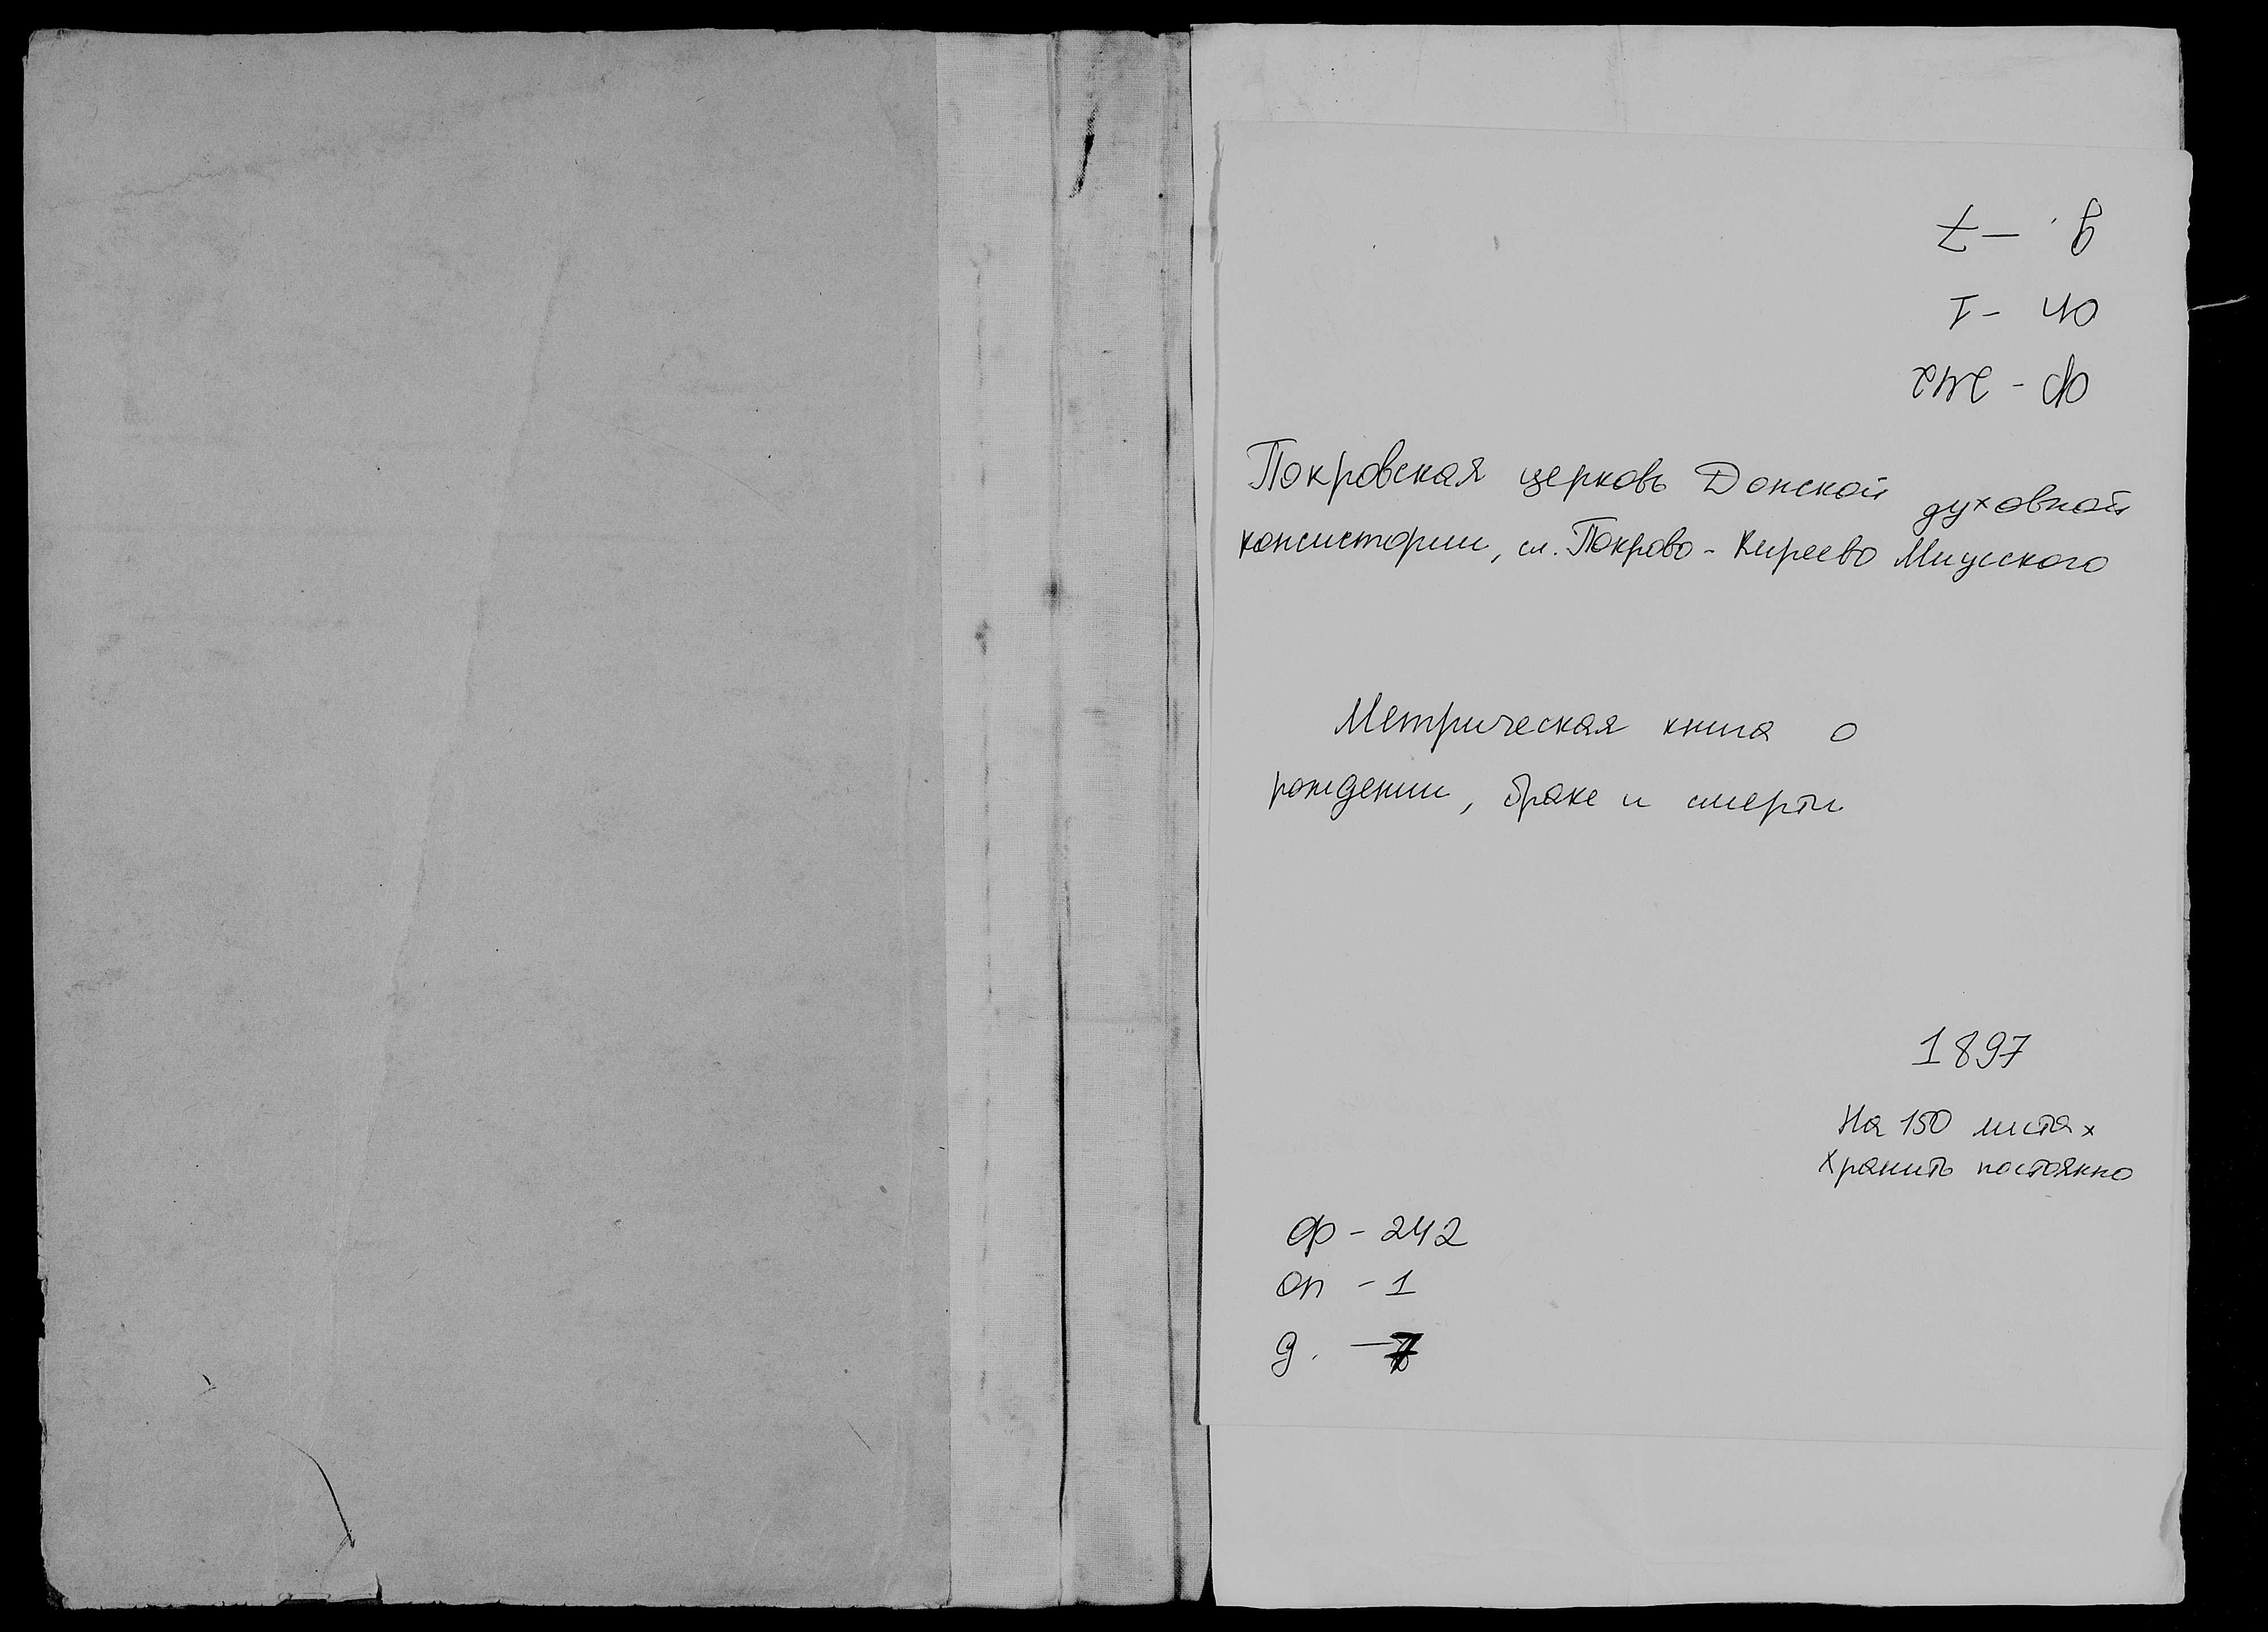 д. – 7
оп – 1
Ф – 242
Покровская церковь Донской духовной
консистории, сл. Покрово-Киреево Миусского
Метрическая книга о
рождении, браке и смерти
1897
На 150 листах
Хранить постоянно
Ф – 242
оп – 1
д. – 7